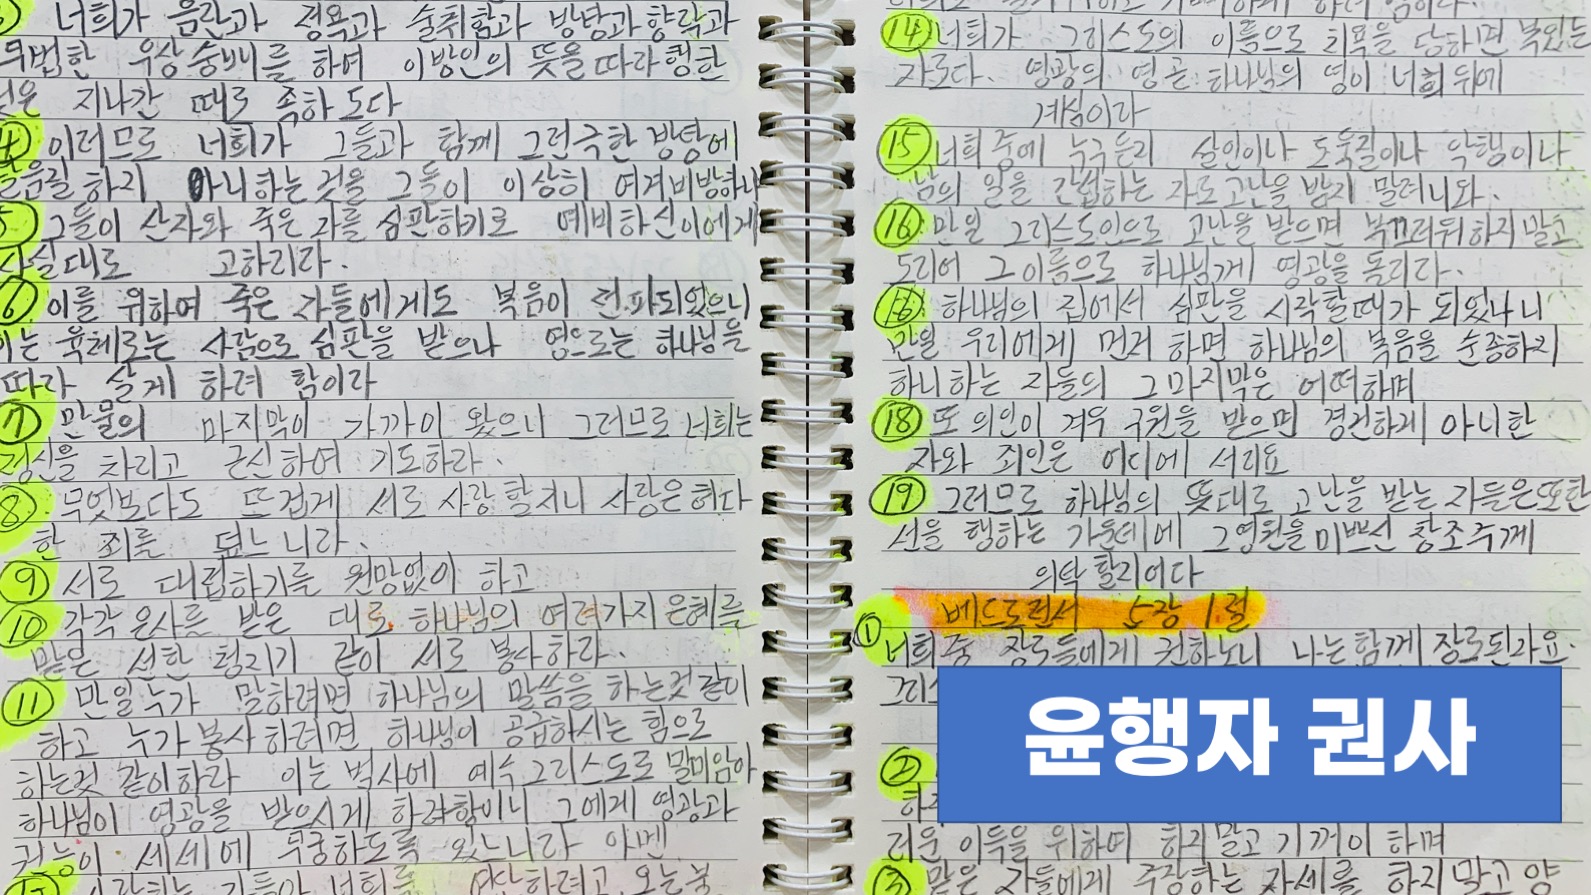 너희가 음란과 정욕과 술취함과 방탕과 향락과
무법한 우상숭배를 하여 이방인의 뜻을 따라 행한
것은 지나간 때로 족하도다
4 이러므로 너희가 그들과 함께 그런 극한 방탕에
하지 아니하는 것을 그들이 이상히 여겨 비방하나
5 그들이 산자와 죽은 자를 심판하기로 예비하신이에게
사실대로 고하리라.
6 이를 위하여 죽은 자들에게도 복음이 전파되었으니
이는 육체로는 사람으로 심판을 받으나 영으로는 하나님을
따라 살게 하려 함이라
7 만물의 마지막이 가까이 왔으니 그러므로 너희는
정신을 차리고 근신하여 기도하라.
8 무엇보다도 뜨겁게 서로 사랑할지니 사랑은 허다
한 죄를 덮느니라.
9 서로 대립하기를 원망없이 하고
10 각각 은사를 받은 대로 하나님의 여러가지 은혜를
맡은 선한 청지기 같이 서로 봉사하라.
11 만일 누가 말하려면 하나님의 말씀을 하는것 같이
하고 누가 봉사하려면 하나님이 공급하시는 힘으로
하는것 같이하라 이는 범사에 예수 그리스도로 말미암아
하나님이 영광을 받으시게 하려함이니 그에게 영광과
권능이 세세에 무궁하도록 있느니라 아멘
너희를 하려고 오는 불
14 너희가 그리스도의 이름으로 치욕을 당하면 복있는
자로다. 영광의 영 곧 하나님의 영이 너희 위에
계심이라
15 너희 중에 누구든지 살인이나 도둑질이나 악행이나
남의 일을 간섭하는 자로 고난을 받지 말려니와.
16 만일 그리스도인으로 고난을 받으면 부끄러워하지 말고
도리어 그 이름으로 하나님께 영광을 돌리라.
하나님의 집에서 심판을 시작할때가 되었나니
만일 우리에게 먼저 하면 하나님의 복음을 순종하지
하니하는 자들의 그 마지막은 어떠하며
18 또 의인이 겨우 구원을 받으면 경건하게 아니한
자와 죄인은 어디에 서리요
19 그러므로 하나님의 뜻대로 고난을 받는 자들은 또한
선을 행하는 가운데에 그 영원을 미쁘신 창조주께
의탁 할지어다
베드로전서 5장 1절
① 너희 중 장로들에게 권하노니 나는 함께 장로된자요.
그리스
윤행자 권사
②
하지
러운 이득을 위하여 하지말고 기꺼이 하며
③ 맡은 자들에게 주장하는 자세를 하지말고 양